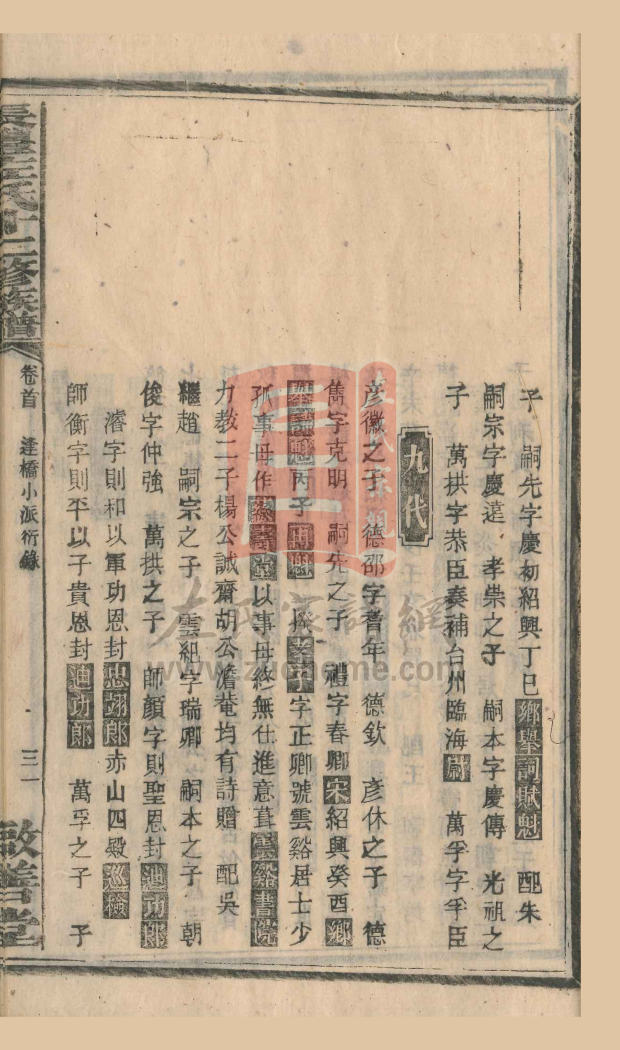 子　嗣先字慶初紹興丁巳鄉舉詞賦魁　配朱
嗣宗字慶遠　孝崇之子　嗣本字慶傳　光祖之
子　萬拱字恭臣奏補台州臨海尉　萬孚字孚臣
九代
彦徽之子　德邵字耆年　德欽　彦休之子　德
雋字克明　嗣先之子　禮字春卿宋紹興癸酉鄉
舉詩魁丙子再魁　揆孝子字正卿號雲谿居士少
孤事母作慈壽堂以事母終無仕進意葺雲谿書院
力教二子楊公誠齋胡公澹菴均有詩贈　配吳
繼趙　嗣宗之子　雲組字瑞卿　嗣本之子　朝
俊字仲強　萬拱之子　師顔字則聖恩封迪功郎
濬字則和以軍功恩封忠翊郎赤山四殿巡檢
師衡字則平以子貴恩封迪功郎　萬孚之子　子
長溪左氏十二修族譜
卷首　逢橋小派衍錄
三一
敦善堂
左氏家譜網
www.zuohome.com